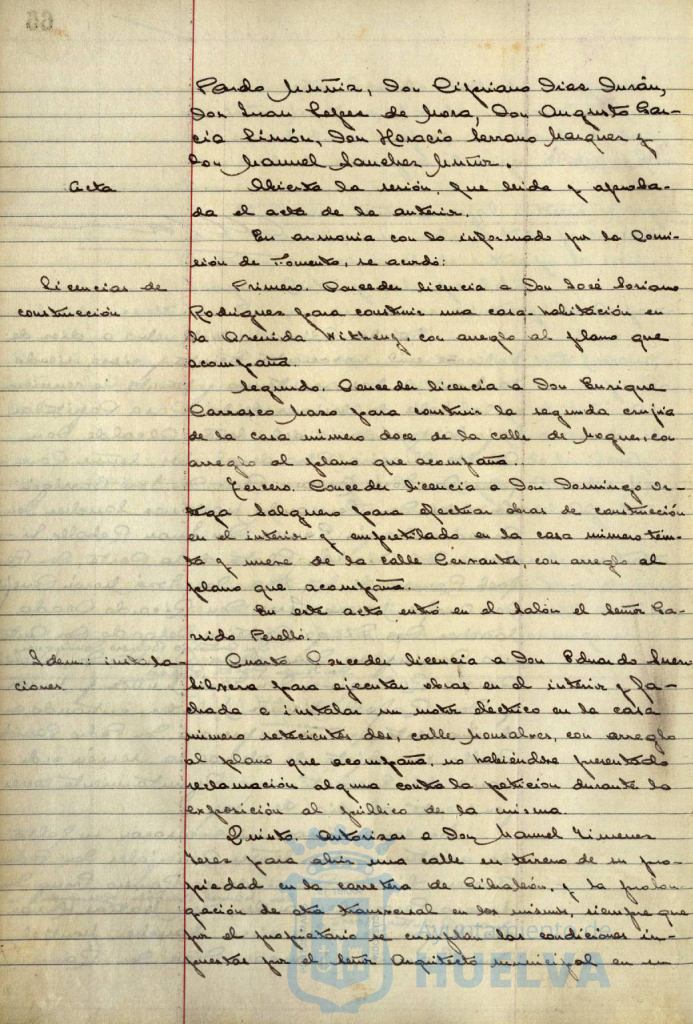 Pardo Muñiz, Don Cipriano Dias Durán,
Don Juan Lopez de Mora, Don Augusto Gar-
cia Limón, Don Horacio Serrano Marquez y
Don Manuel Sanchez Muñiz.
Acta
Abierta la sesión, fue leida y aproba-
da el acta de la anterior.
En armonia con lo informado por la Comi-
sión de Fomento, se acordó:
Licencias de
construcción
Primero. Conceder licencia a Don José Soriano
Rodriguez para construir una casa-habitación en
la Avenida, con arreglo al plano que
acompaña.
Segundo. Conceder licencia a Don Enrique
Carrasco Mazo para construir la segunda crujia
de la casa número doce de la calle de Moguer, con
arreglo al plano que acompaña.
Tercero. Conceder licencia a Don Domingo Or-
tega Salguero para efectuar obras de construcción
en el interior y empretilado en la casa número trein-
ta y nueve de la calle Cervantes, con arreglo al
plano que acompaña.
En este acto entró en el Salón el Señor Ga-
rrido Perelló.
Idem: instala-
ciones
Cuarto. Conceder licencia a Don Eduardo
para ejecutar obras en el interior y fa-
chada e instalar un motor eléctrico en la casa
número setecientos dos, calle, con arreglo
al plano que acompaña, no habiéndose presentado
reclamación alguna contra la petición durante la
exposición al público de la misma.
Quinto. Autorizar a Don Manuel Jimenez
Jerez para abrir una calle en terreno de su pro-
piedad en la carretera de Gibraleón, y la prolon-
gación de otra transversal en los mismos, siempre que
por el propietario se cumplan las condiciones im-
puestas por el Señor Arquitecto municipal en su
Ayuntamiento de
HUELVA